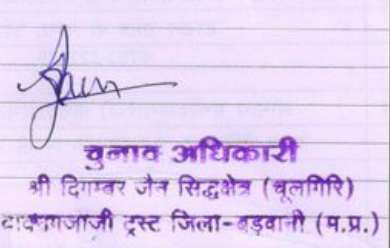 चुनाव अधिकारी
श्री दिगम्बर जैन सिद्धक्षेत्र (चूलगिरि)
ट्रस्ट जिला-बड़वानी (म.प्र.)